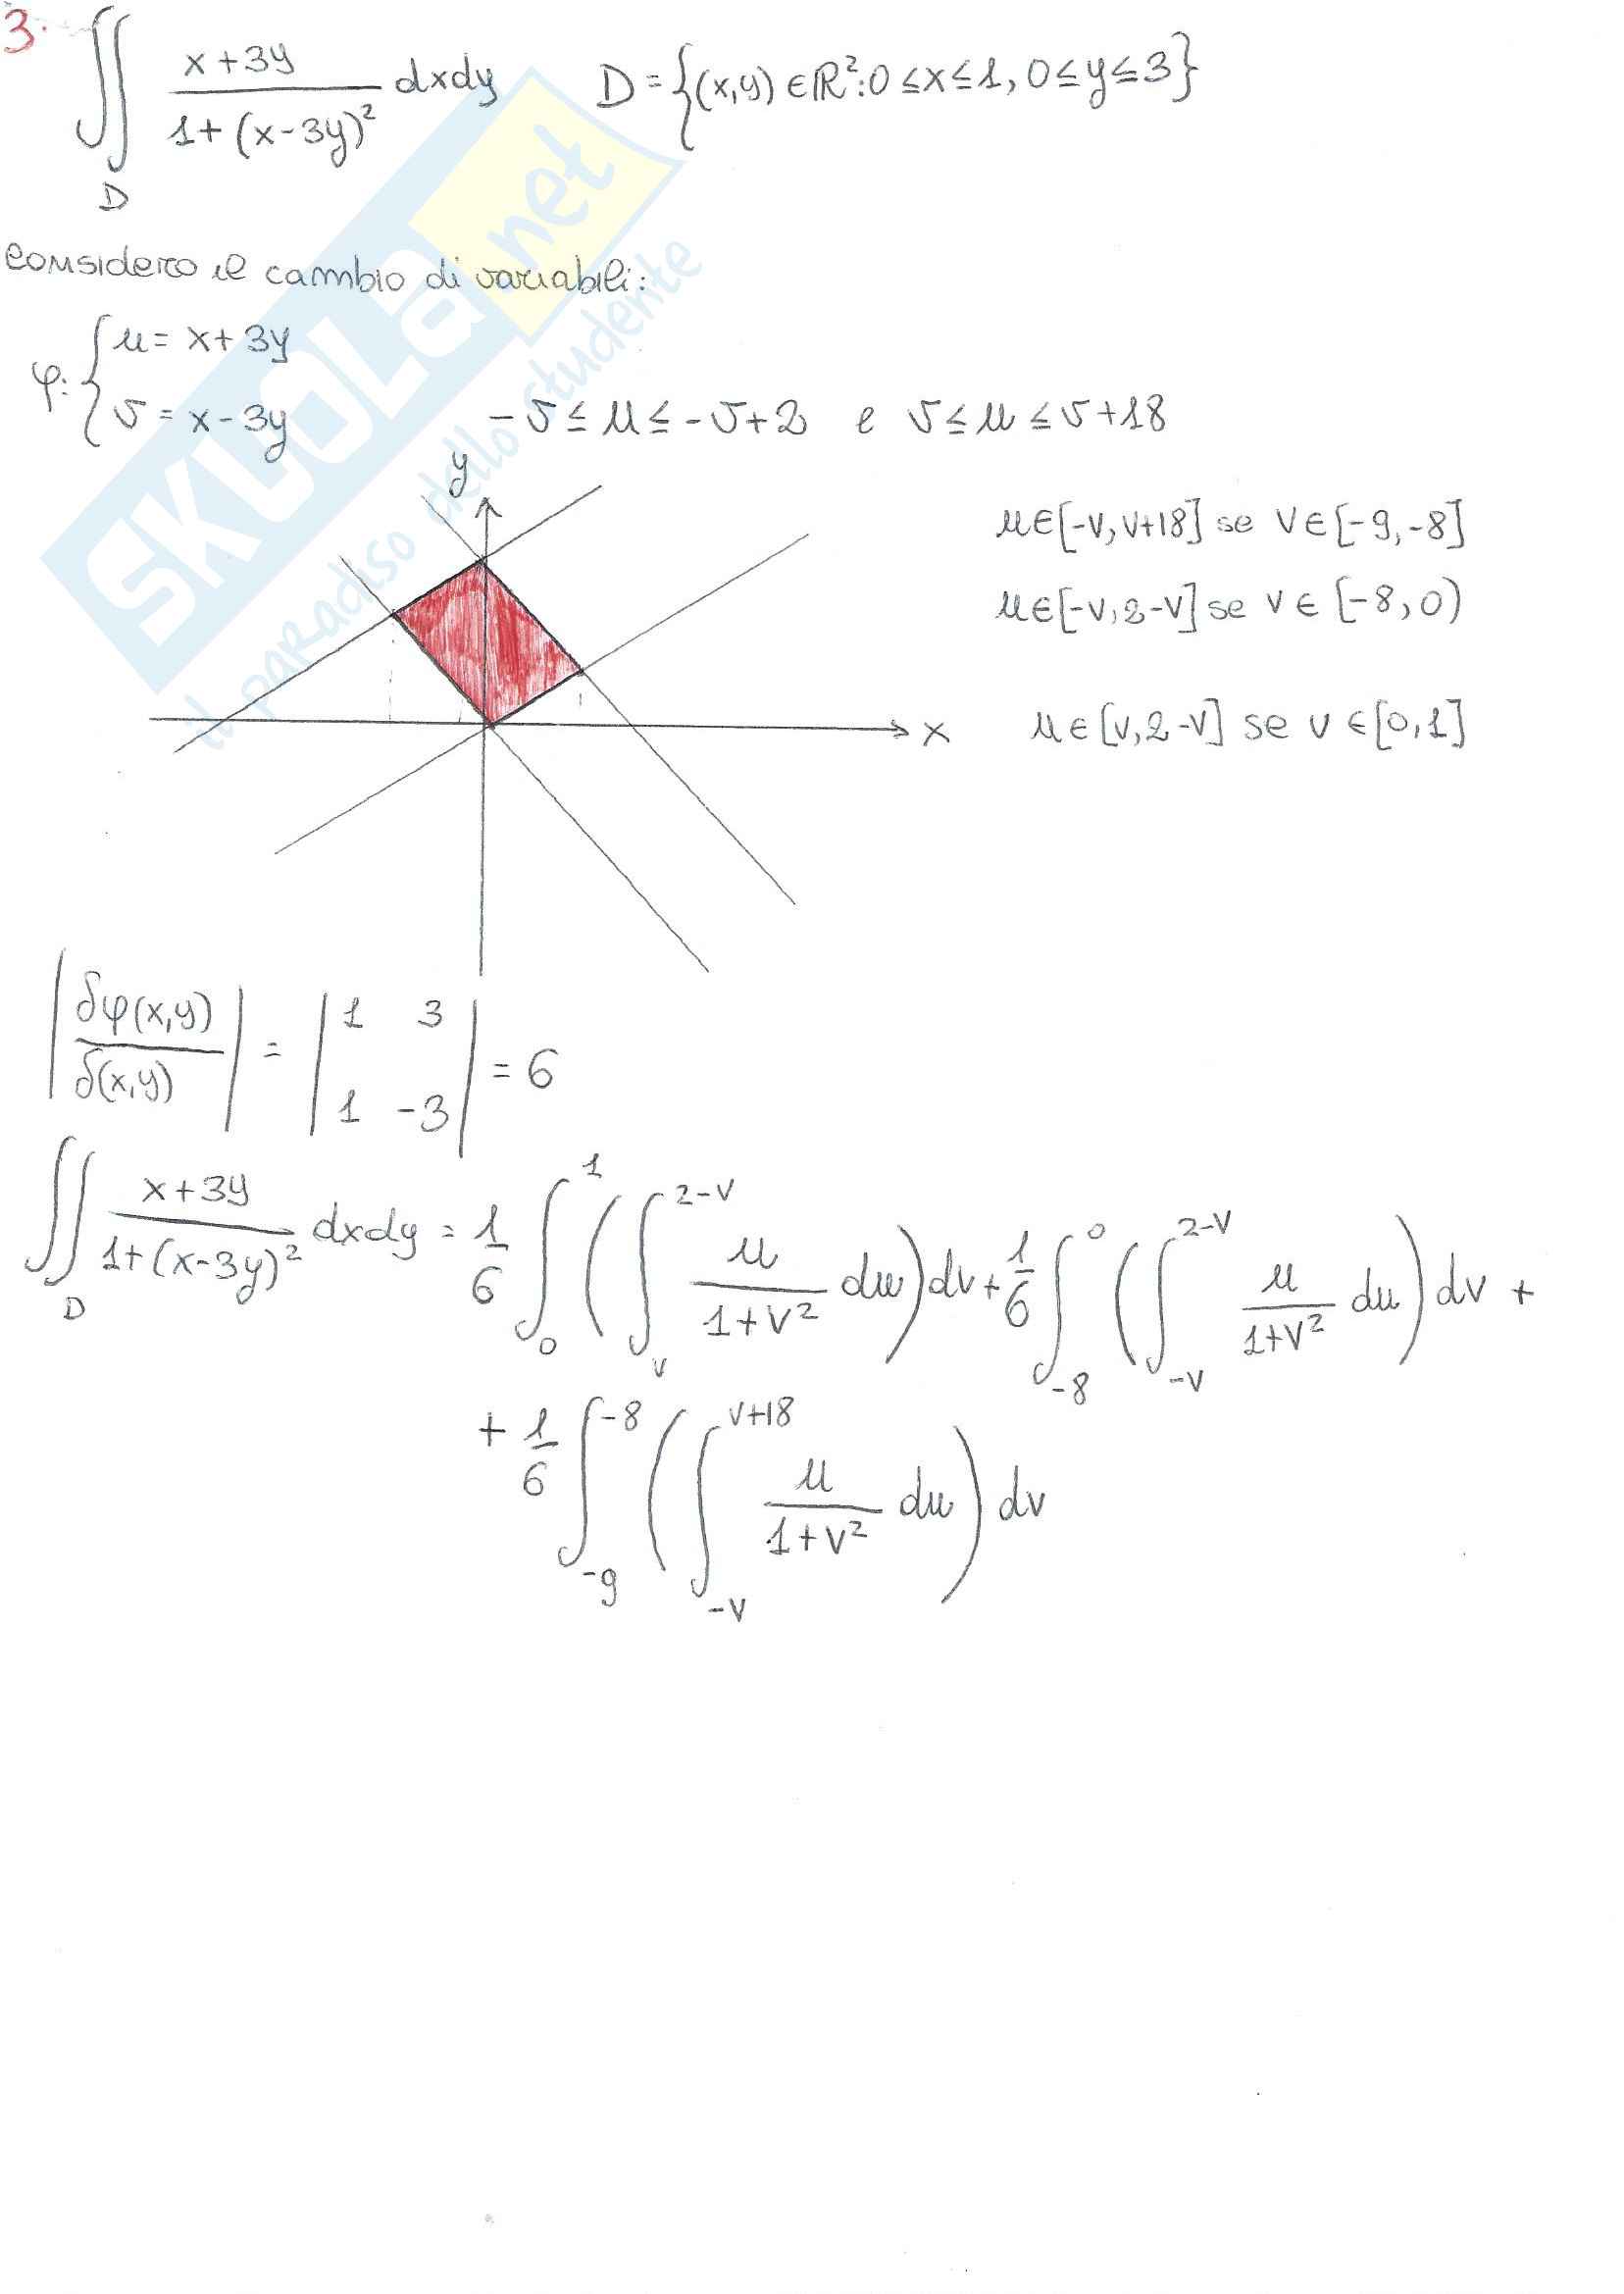 3. ∬_D (x+3y)/(1+(x-3y)²) dxdy D = {(x,y) ∈ ℝ²: 0 ≤ x ≤ 1, 0 ≤ y ≤ 3}
considero il cambio di variabili:
φ: { u = x+3y
v = x-3y -v ≤ u ≤ -v+2 e v ≤ u ≤ v+18
y
u∈[-v, v+18] se v∈[-9,-8]
u∈[-v, 2-v] se v∈[-8,0)
x
u∈[v, 2-v] se v∈[0,1]
|δφ(x,y)/δ(x,y)| = |1 3; 1 -3| = 6
∬_D (x+3y)/(1+(x-3y)²) dxdy = 1/6 ∫_0^1 (∫_v^{2-v} u/(1+v²) du) dv + 1/6 ∫_{-8}^0 (∫_{-v}^{2-v} u/(1+v²) du) dv +
+ 1/6 ∫_{-9}^{-8} (∫_{-v}^{v+18} u/(1+v²) du) dv
SKUOLa.net
il paradiso dello studente